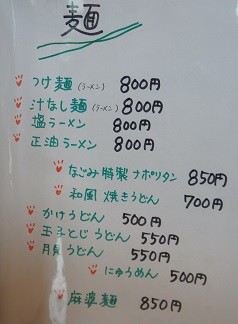 麺
つけ麺(ラーメン) 800円
汁なし麺(ラーメン) 800円
塩ラーメン 800円
正油ラーメン 800円
なごみ特製ナポリタン 850円
和風焼きうどん 700円
かけうどん 500円
玉子とじうどん 550円
月見うどん 550円
にゅうめん 500円
麻婆麺 850円